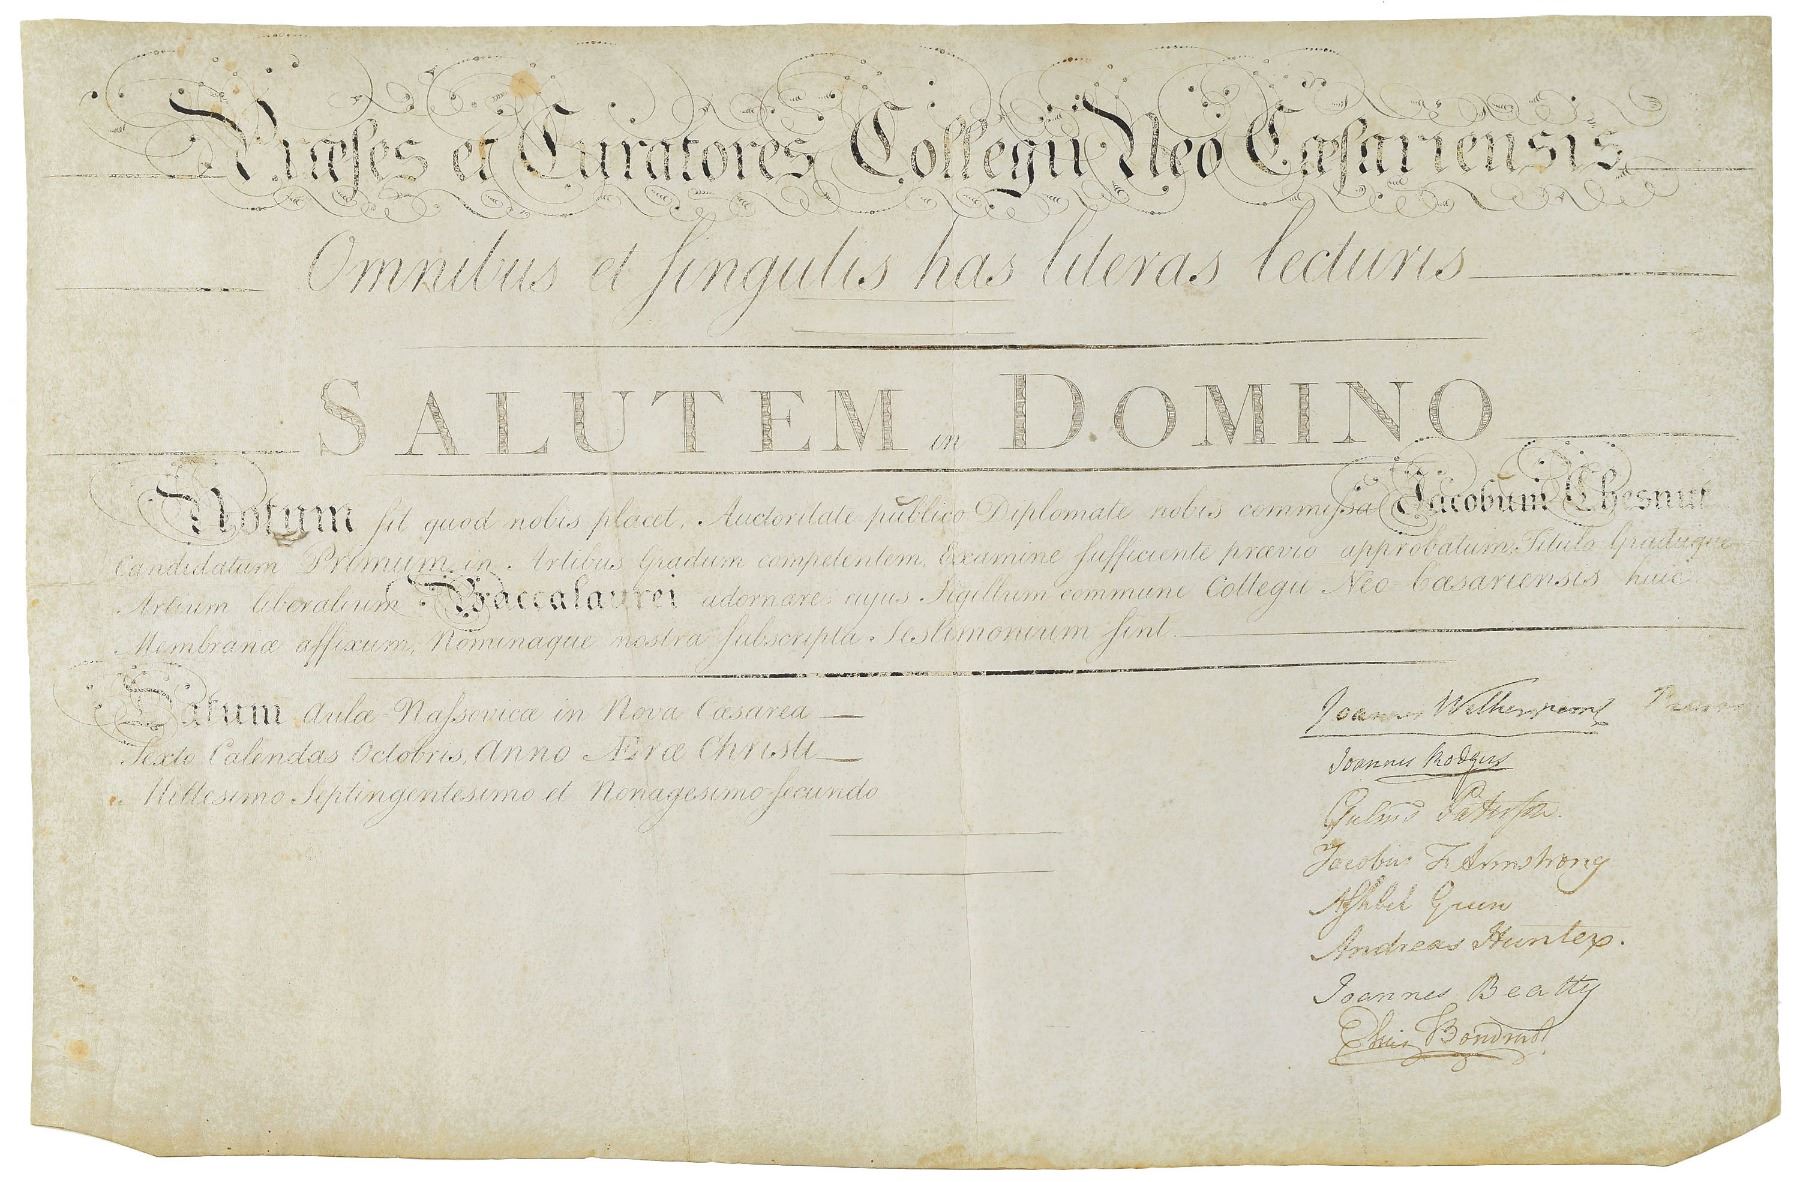 Præses et Curatores Collegii Neo Cæsariensis
Omnibus et singulis has literas lecturis
SALUTEM in DOMINO
Notum sit quod nobis placet, Auctoritate publico Diplomate nobis commissa Jacobum Chesnut
Candidatum Primum in Artibus Gradum competentem, Examine sufficiente prævio approbatum, Titulo Graduque
Artium liberalium Baccalaurei adornare: cujus Sigillum commune Collegii Neo-Cæsariensis huic
Membranæ affixum, Nominaque nostra subscripta Testimonium sint
Datum Aulæ-Nassovicæ in Nova Cæsarea
Sexto Calendas Octobris, Anno Æræ Christi
Millesimo Septingentesimo et Nonagesimo secundo
Joannes Witherspoon
Joannes Rodgers
Jacobus F Armstrong
Ashbel Green
Andreas Hunter.
Joannes Beatty
Elias Boudinot